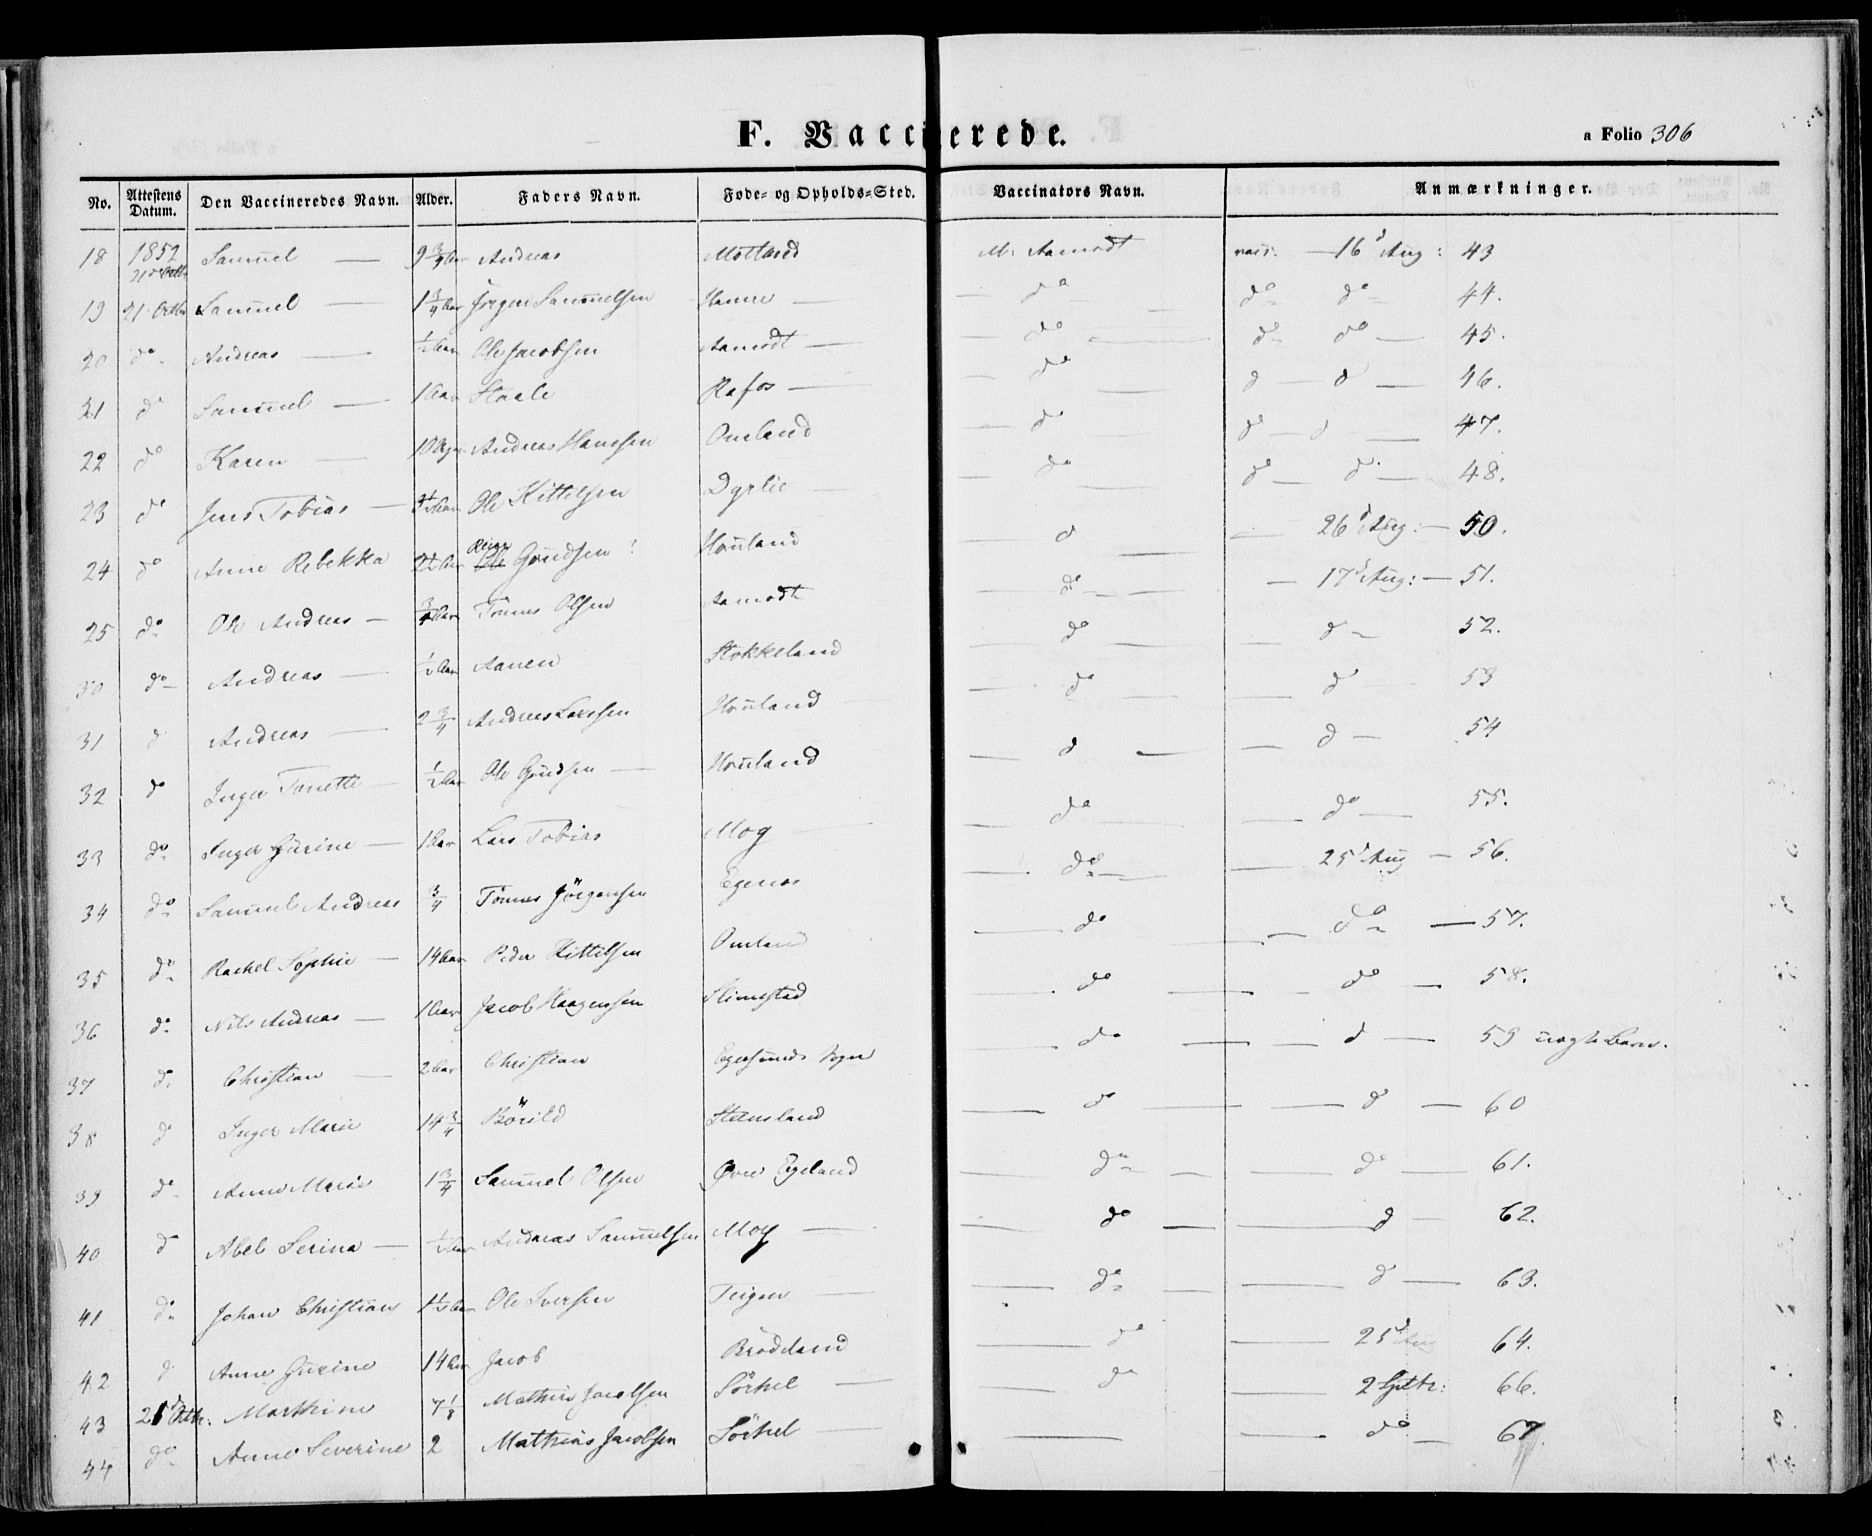 F. Vaccinerede.
a Folio 306
No. Attestens Datum. Den Vaccineredes Navn. Alder. Faders Navn. Føde- og Opholds-Sted. Vaccinators Navn. Anmærkninger.
18 1852 21 Octbr Samuel — 9 3/4 aar Andreas M. Aamodt — 16d Aug: 43
19 21 Octbr Samuel — 1 3/4 aar Jörgen Samuelsen — do do do 44.
20 do Andreas — 1/2 aar Ole Jacobsen Aamodt — do do do — 45.
21 do Samuel — 1 aar Staale Rafos — do d — d — 46.
22 do Karen — Andreas Hanssen Omland — do do — d — 47.
23 do Jens Tobias — Ole Kittelsen Dyrlie — do do — do — 48.
24 do Anne Rebekka 2 1/2 aar Gundsen Houland d — 26d Aug: — 50.
25 do Ole Andreas — 3/4 aar Tönnes Olsen Aamodt do — 17d Aug: — 51.
30 do Andreas — 1/2 aar Aanen Stokkeland — do — d — 52.
31 d Andreas — 2 3/4 Andreas Larssen Houland — do — d 53
32 do Inger Tonette — 1/2 aar Ole Gundsen — Houland — d — d — 54
33 do Inger Gurine — 1 aar Lars Tobias Mog — do — do — 55.
34 do Samuel Andreas 3/4 Tönnes Jörgensen Egenes — do — 25d Aug — 56.
35 do Rachel Sophie — 14 aar Peder Kittelsen Omland — do — do — 57.
36 do Nils Andreas — 1 aar Jacob Haagensen Slimestad — do — do — 58.
37 do Christian — 2 aar Christian Egersunds Sogn — do — d — 59 uægte Barn.
38 d Inger Marie 14 3/4 Börild Steensland — do — d — 60
39 do Anne Marie 1 3/4 Samuel Olsen Øvre Egeland — do — do — 61.
40 do Abel Serina — 1/2 aar Andreas Samuelsen Moy — do — d — 62.
41 do Johan Christian 1 1/2 aar Ole Iversen Teigen — do — d — 63.
42 d Anne Gurine 14 aar Jacob Brödeland — do — 25d Aug 64.
43 21d Octbr. Marthine 7 1/8 Mathias Jacobsen Sörhel — do — 2 Septbr: 66.
44 do Anne Severine 2 Mathias Jacobsen Sörhel — do — 67.